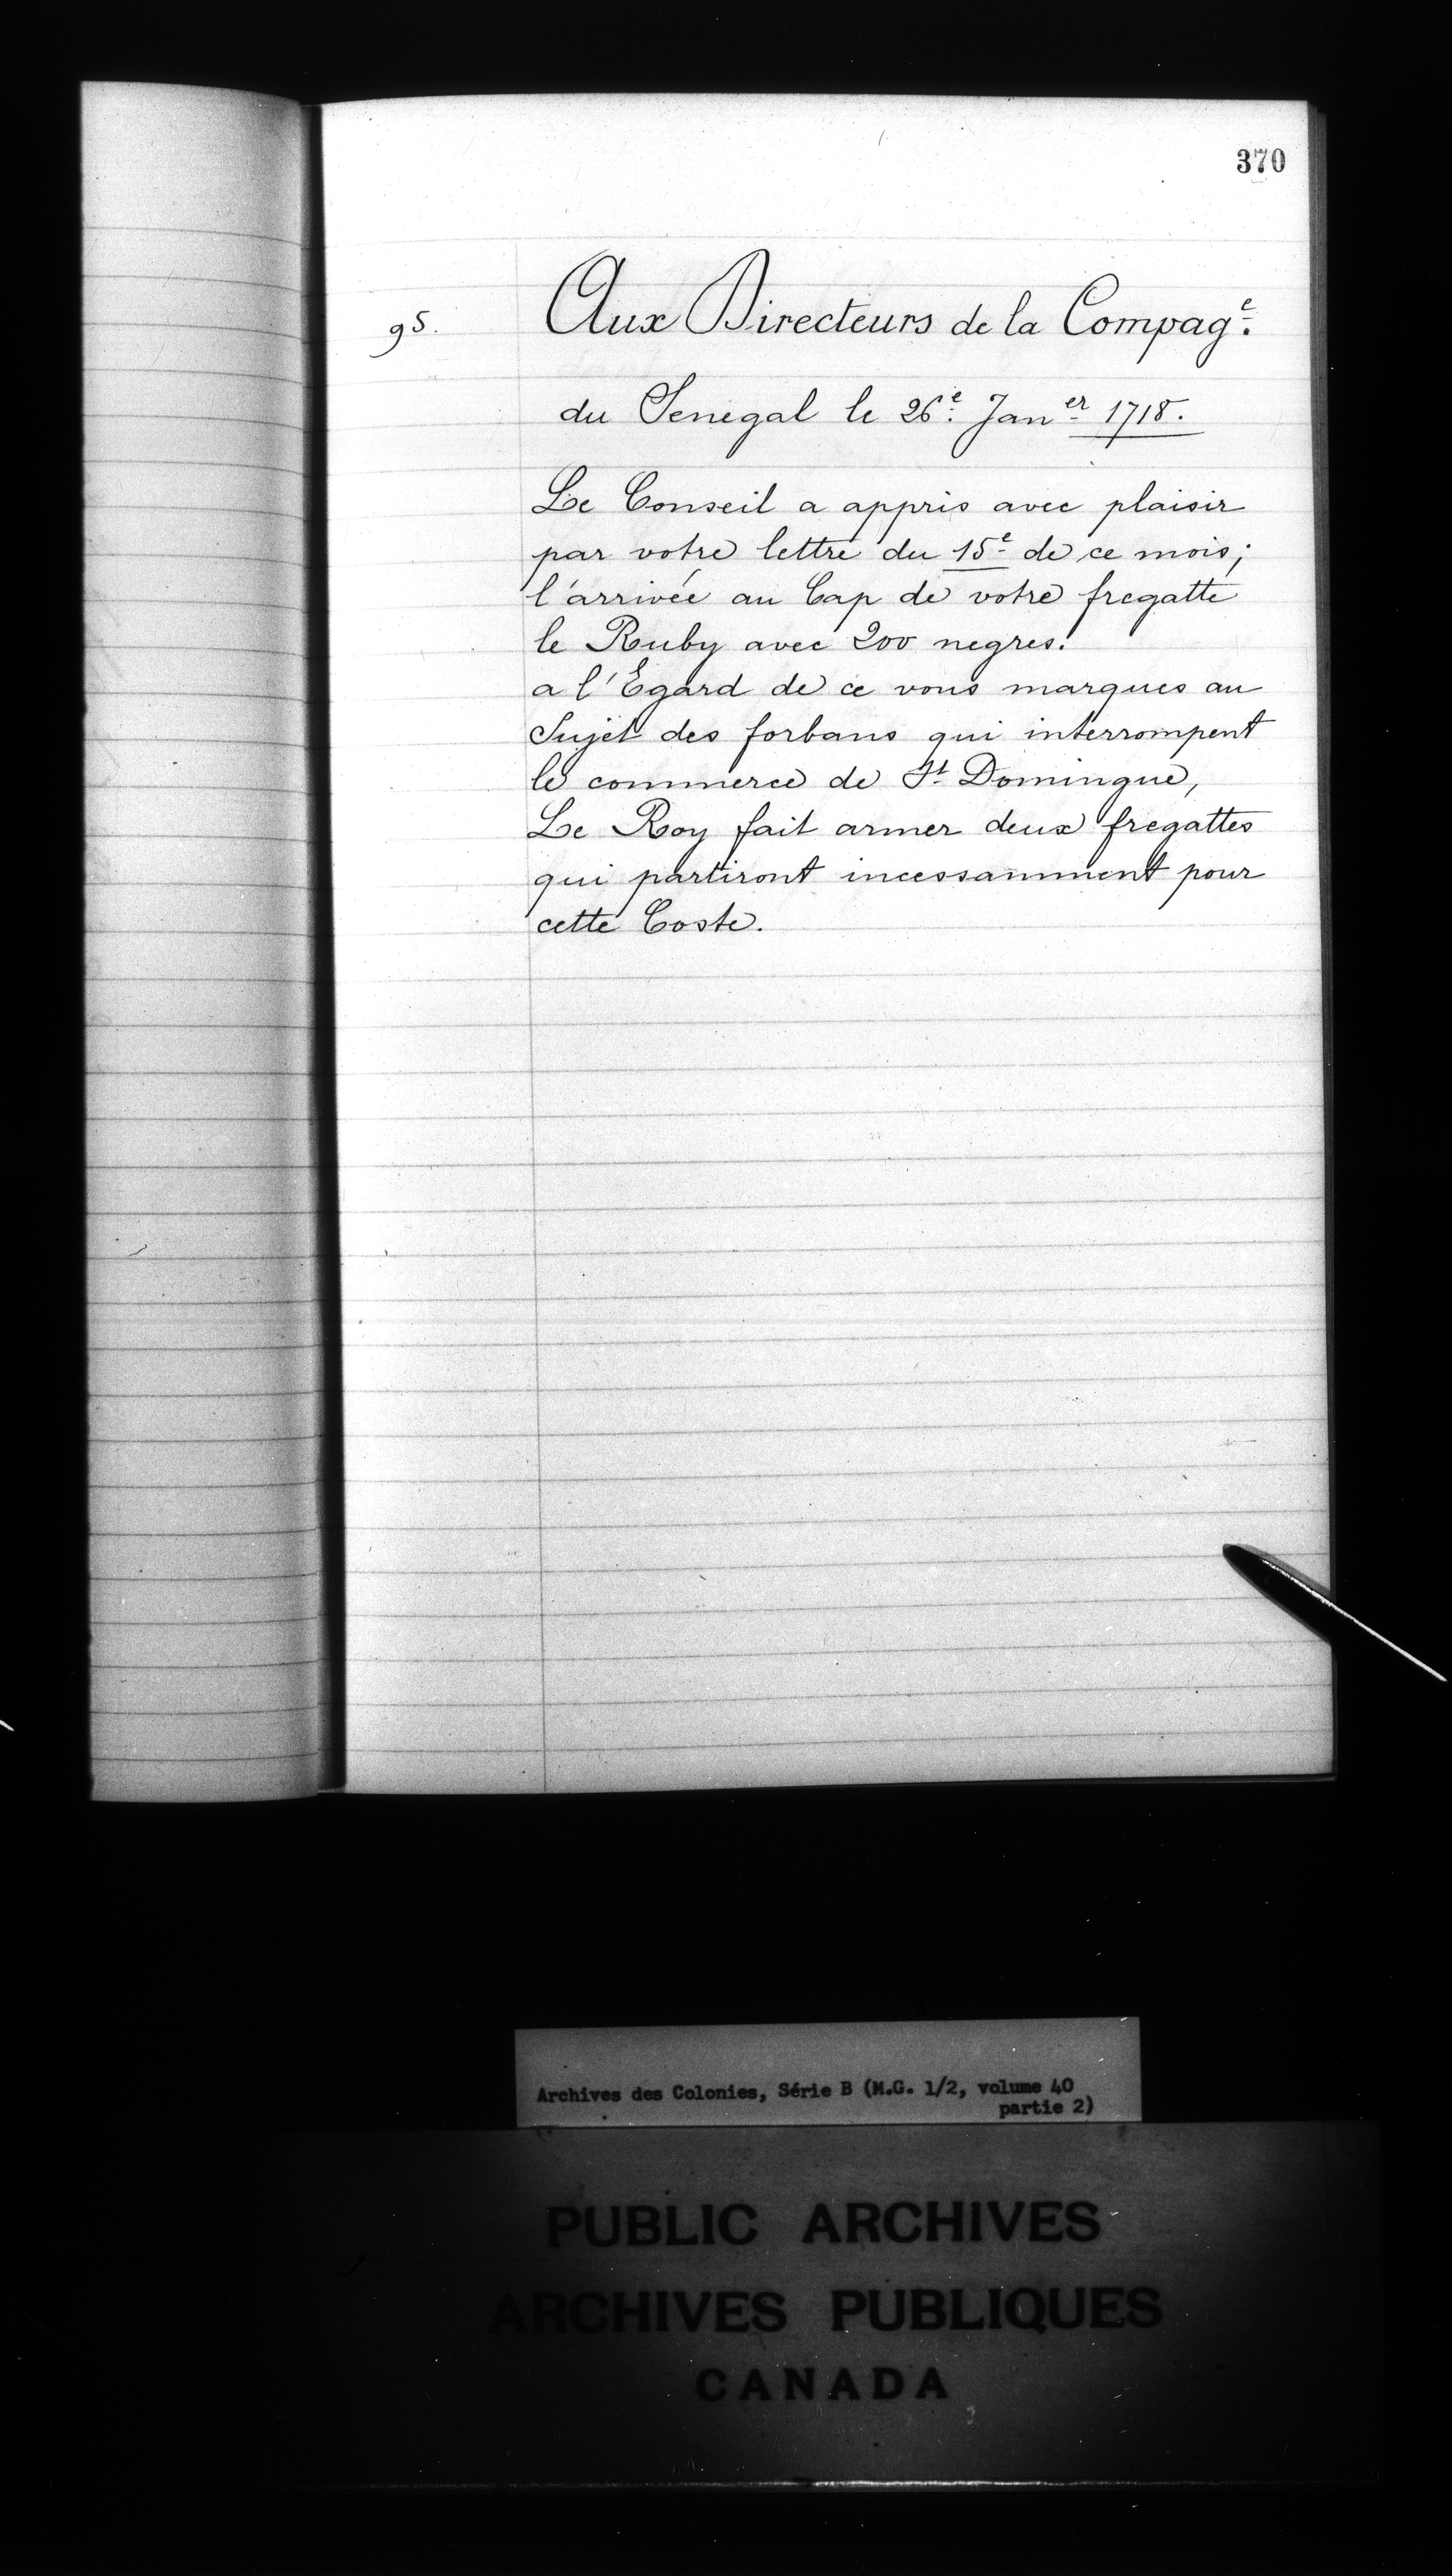 370
95.
Aux Directeurs de la Compag.e
du Senegal le 26.e Jan.er 1718.
Le Conseil a appris avec plaisir
par votre lettre du 15.e de ce mois;
l'arrivée au Cap de votre fregatte
le Ruby avec 200 negres.
a l'Egard de ce vous marques au
Sujet des forbans qui interrompent
le commerce de St. Domingue,
Le Roy fait armer deux fregattes
qui partiront incessamment pour
cette Coste.
Archives des Colonies, Série B (M.G. 1/2, volume 40
partie 2)
PUBLIC ARCHIVES
ARCHIVES PUBLIQUES
CANADA